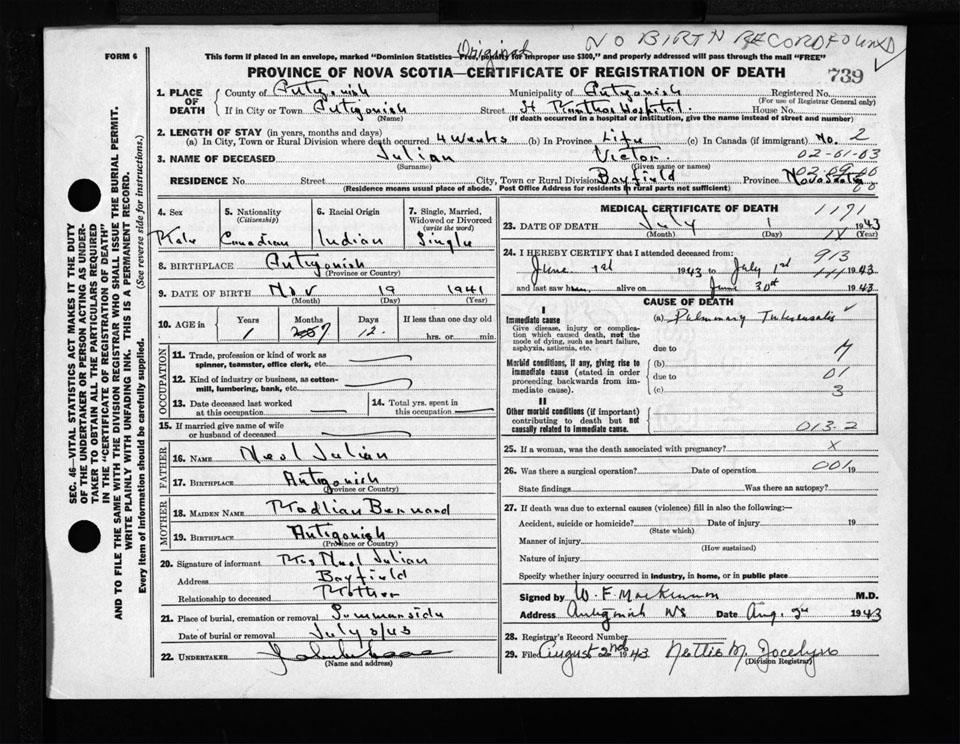 NO BIRTH RECORD FOUND
Original
FORM 6
This form if placed in an envelope, marked "Dominion Statistics—Free, penalty for improper use $300," and properly addressed will pass through the mail "FREE"
PROVINCE OF NOVA SCOTIA—CERTIFICATE OF REGISTRATION OF DEATH
739
SEC. 46—VITAL STATISTICS ACT MAKES IT THE DUTY
OF THE UNDERTAKER OR PERSON ACTING AS UNDER-
TAKER TO OBTAIN ALL THE PARTICULARS REQUIRED
IN THE "CERTIFICATE OF REGISTRATION OF DEATH"
AND TO FILE THE SAME WITH THE DIVISION REGISTRAR WHO SHALL ISSUE THE BURIAL PERMIT.
WRITE PLAINLY WITH UNFADING INK. THIS IS A PERMANENT RECORD.
Every item of Information should be carefully supplied. (See reverse side for instructions.)
1. PLACE OF DEATH County of Antigonish Municipality of Antigonish Registered No.
(For use of Registrar General only)
If in City or Town Antigonish Street St Marthas Hospital House No.
(Name) (If death occurred in a hospital or institution, give the name instead of street and number)
2. LENGTH OF STAY (in years, months and days)
(a) In City, Town or Rural Division where death occurred 4 weeks (b) In Province Life (c) In Canada (if immigrant) No. 2
3. NAME OF DECEASED Julian Victor 02-01-03
(Surname) (Given name or names)
RESIDENCE No. Street City, Town or Rural Division Bayfield Province Nova Scotia
(Residence means usual place of abode. Post Office Address for residents in rural parts not sufficient)
4. Sex
Male
5. Nationality
(Citizenship)
Canadian
6. Racial Origin
Indian
7. Single, Married,
Widowed or Divorced
(write the word)
Single
8. BIRTHPLACE Antigonish
(Province or Country)
9. DATE OF BIRTH Nov 19 1941
(Month) (Day) (Year)
10. AGE in
Years Months Days If less than one day old
1 7 12 hrs. or min.
OCCUPATION
11. Trade, profession or kind of work as
spinner, teamster, office clerk, etc.
12. Kind of industry or business, as cotton-
mill, lumbering, bank, etc.
13. Date deceased last worked
at this occupation
14. Total yrs. spent in
this occupation
15. If married give name of wife
or husband of deceased
FATHER
16. NAME Noel Julian
17. BIRTHPLACE Antigonish
(Province or Country)
MOTHER
18. MAIDEN NAME Madlian Bernard
19. BIRTHPLACE Antigonish
(Province or Country)
20. Signature of informant Mrs Noel Julian
Address Bayfield
Relationship to deceased Mother
21. Place of burial, cremation or removal Summerside
Date of burial or removal July 2/43
22. UNDERTAKER
(Name and address)
MEDICAL CERTIFICATE OF DEATH 1171
23. DATE OF DEATH July 1 1943
(Month) (Day) (Year)
24. I HEREBY CERTIFY that I attended deceased from: 913
June 1st 1943 to July 1st 1943
and last saw him alive on June 30th 1943
CAUSE OF DEATH
I
Immediate cause
Give disease, injury or complica-
tion which caused death, not the
mode of dying, such as heart failure,
asphyxia, asthenia, etc.
(a) Pulmonary Tuberculosis
due to
Morbid conditions, if any, giving rise to
immediate cause (stated in order
proceeding backwards from im-
mediate cause).
(b)
due to 01
(c) 3
II
Other morbid conditions (if important)
contributing to death but not
causally related to immediate cause.
013-2
25. If a woman, was the death associated with pregnancy? X
26. Was there a surgical operation? Date of operation 001 19
State findings Was there an autopsy?
27. If death was due to external causes (violence) fill in also the following:—
Accident, suicide or homicide? Date of injury 19
(State which)
Manner of injury
(How sustained)
Nature of injury
Specify whether injury occurred in industry, in home, or in public place
Signed by W. F. MacKinnon M.D.
Address Antigonish NS Date Aug. 2 1943
28. Registrar's Record Number
29. Filed August 2nd 1943 Nettie M. Jocelyn
(Division Registrar)